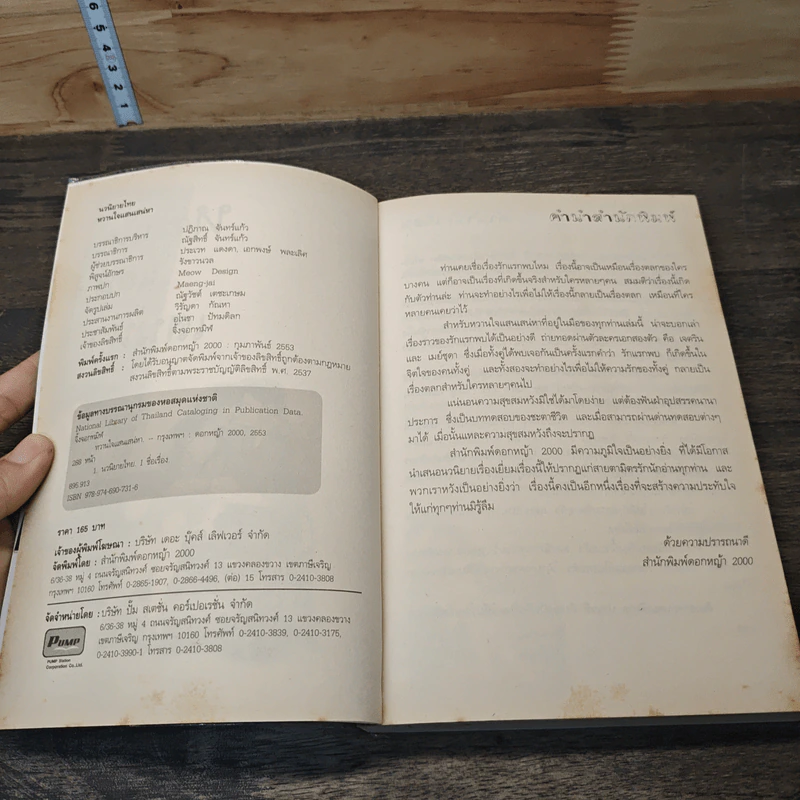 6 5 4 3 2 1
นวนิยายไทย
หวานใจแสนเสน่หา
บรรณาธิการบริหาร ปฏิภาณ จันทร์แก้ว
บรรณาธิการ ณัฐสิทธิ์ จันทร์แก้ว
ผู้ช่วยบรรณาธิการ ประเวท แดงดา, เอกพงษ์ พละเลิศ
พิสูจน์อักษร รังชาวนวล
ภาพปก Meow Design
ประกอบปก Maeng-jai
จัดรูปเล่ม ณัฐวัชต์ เตชะเกษม
ประสานงานการผลิต วิรัญดา กัณหา
ประชาสัมพันธ์ อโนชา ปัทมดิลก
เจ้าของลิขสิทธิ์ จิ้งจอกหมีฟ้
พิมพ์ครั้งแรก : สำนักพิมพ์ดอกหญ้า 2000 : กุมภาพันธ์ 2553
สงวนลิขสิทธิ์ : โดยได้รับอนุญาตจัดพิมพ์จากเจ้าของลิขสิทธิ์ถูกต้องตามกฎหมาย
สงวนลิขสิทธิ์ตามพระราชบัญญัติลิขสิทธิ์ พ.ศ. 2537
ข้อมูลทางบรรณานุกรมของหอสมุดแห่งชาติ
National Library of Thailand Cataloging in Publication Data.
จิ้งจอกหมีฟ้
หวานใจแสนเสน่หา. -- กรุงเทพฯ : ดอกหญ้า 2000, 2553
288 หน้า
1. นวนิยายไทย. I ชื่อเรื่อง
895.913
ISBN 978-974-690-731-6
ราคา 165 บาท
เจ้าของผู้พิมพ์โฆษณา : บริษัท เดอะ บุ๊คส์ เลิฟเวอร์ จำกัด
จัดพิมพ์โดย : สำนักพิมพ์ดอกหญ้า 2000
6/36-38 หมู่ 4 ถนนจรัญสนิทวงศ์ ซอยจรัญสนิทวงศ์ 13 แขวงคลองขวาง เขตภาษีเจริญ
กรุงเทพฯ 10160 โทรศัพท์ 0-2865-1907, 0-2866-4496, (ต่อ) 15 โทรสาร 0-2410-3808
จัดจำหน่ายโดย : บริษัท ปั๊ม สเตชั่น คอร์เปอเรชั่น จำกัด
6/36-38 หมู่ 4 ถนนจรัญสนิทวงศ์ ซอยจรัญสนิทวงศ์ 13 แขวงคลองขวาง
เขตภาษีเจริญ กรุงเทพฯ 10160 โทรศัพท์ 0-2410-3839, 0-2410-3175,
0-2410-3990-1 โทรสาร 0-2410-3808
PUMP
PUMP Station
Corporation Co.,Ltd.
คำนำสำนักพิมพ์
ท่านเคยเชื่อเรื่องรักแรกพบไหม เรื่องนี้อาจเป็นเหมือนเรื่องตลกของใคร
บางคน แต่ก็อาจเป็นเรื่องที่เกิดขึ้นจริงสำหรับใครหลายๆคน สมมติว่าเรื่องนี้เกิด
กับตัวท่านล่ะ ท่านจะทำอย่างไรเพื่อไม่ให้เรื่องนี้กลายเป็นเรื่องตลก เหมือนที่ใคร
หลายคนเคยว่าไว้
สำหรับหวานใจแสนเสน่หาที่อยู่ในมือของท่านเล่มนี้ น่าจะบอกเล่า
เรื่องราวของรักแรกพบได้เป็นอย่างดี ถ่ายทอดผ่านตัวละครเอกสองตัว คือ เจคริน
และ เมย์ชุดา ซึ่งเมื่อทั้งคู่ได้พบเจอกันเป็นครั้งแรกคำว่า รักแรกพบ ก็เกิดขึ้นใน
จิตใจของคนทั้งคู่ และทั้งสองจะทำอย่างไรเพื่อไม่ให้ความรักของทั้งคู่ กลายเป็น
เรื่องตลกสำหรับใครหลายๆคนไป
แน่นอนความสุขสมหวังมิใช่ได้มาโดยง่าย แต่ต้องฟันฝ่าอุปสรรคนานา
ประการ ซึ่งเป็นบททดสอบของชะตาชีวิต และเมื่อสามารถผ่านด่านทดสอบต่างๆ
มาได้ เมื่อนั้นแหละความสุขสมหวังถึงจะปรากฏ
สำนักพิมพ์ดอกหญ้า 2000 มีความภูมิใจเป็นอย่างยิ่ง ที่ได้มีโอกาส
นำเสนอนวนิยายเรื่องเยี่ยมเรื่องนี้ให้ปรากฏแก่สายตามิตรรักนักอ่านทุกท่าน และ
พวกเราหวังเป็นอย่างยิ่งว่า เรื่องนี้คงเป็นอีกหนึ่งเรื่องที่จะสร้างความประทับใจ
ให้แก่ทุกๆท่านมิรู้ลืม
ด้วยความปรารถนาดี
สำนักพิมพ์ดอกหญ้า 2000